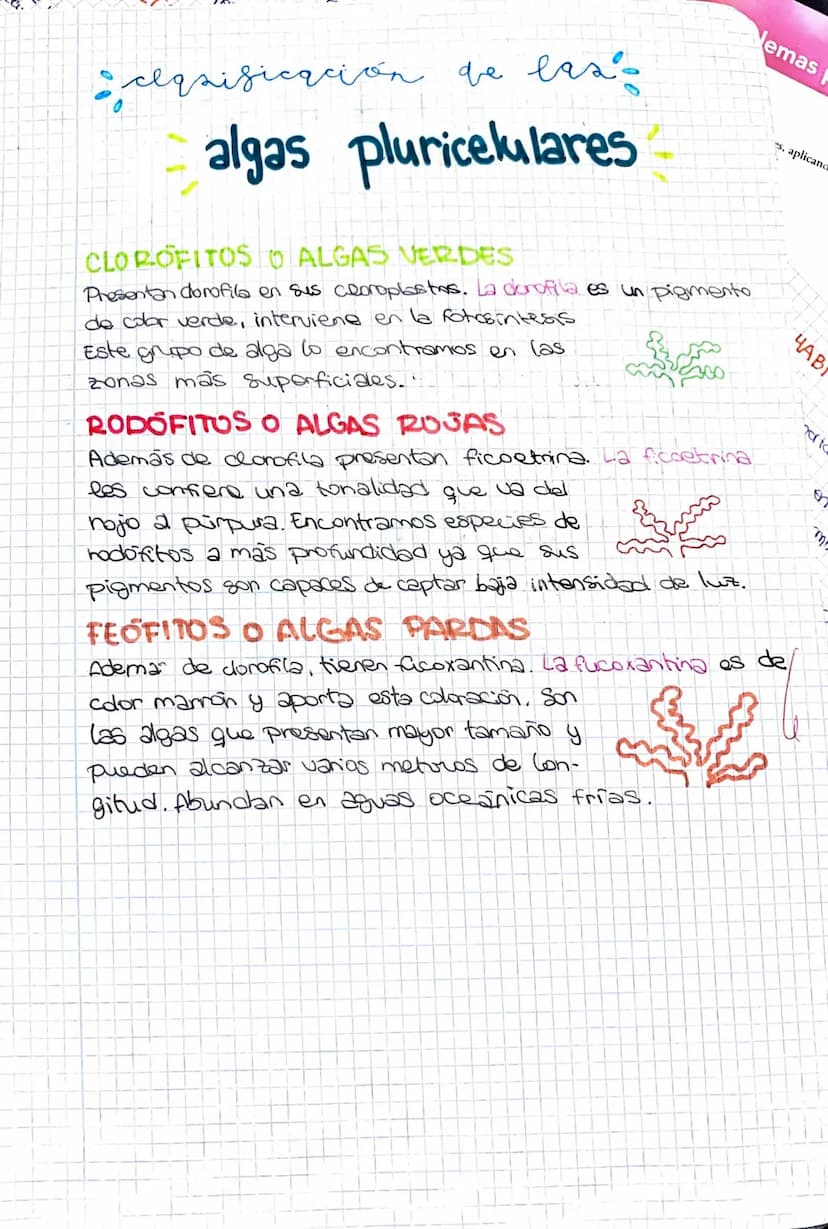 clasificación de las
algas pluricelulares
CLORÓFITOS O ALGAS VERDES
Presentan clorofila en sus cloroplastos. La clorofila es un pigmento
de color verde, interviene en la fotosíntesis
Este grupo de alga lo encontramos en las
zonas más superficiales.
RODÓFITOS O ALGAS ROJAS
Además de clorofila presentan ficoetrina. La ficoetrina
les confiere una tonalidad que va del
rojo al púrpura. Encontramos especies de
rodófitos a más profundidad ya que sus
pigmentos son capaces de captar baja intensidad de luz.
FEÓFITOS O ALGAS PARDAS
Ademas de clorofila, tienen fucoxantina. La fucoxantina es de
color marrón y aporta esta coloración. Son
las algas que presentan mayor tamaño y
pueden alcanzar varios metros de lon-
gitud. Abundan en aguas oceánicas frías.
lemas
s, aplicand